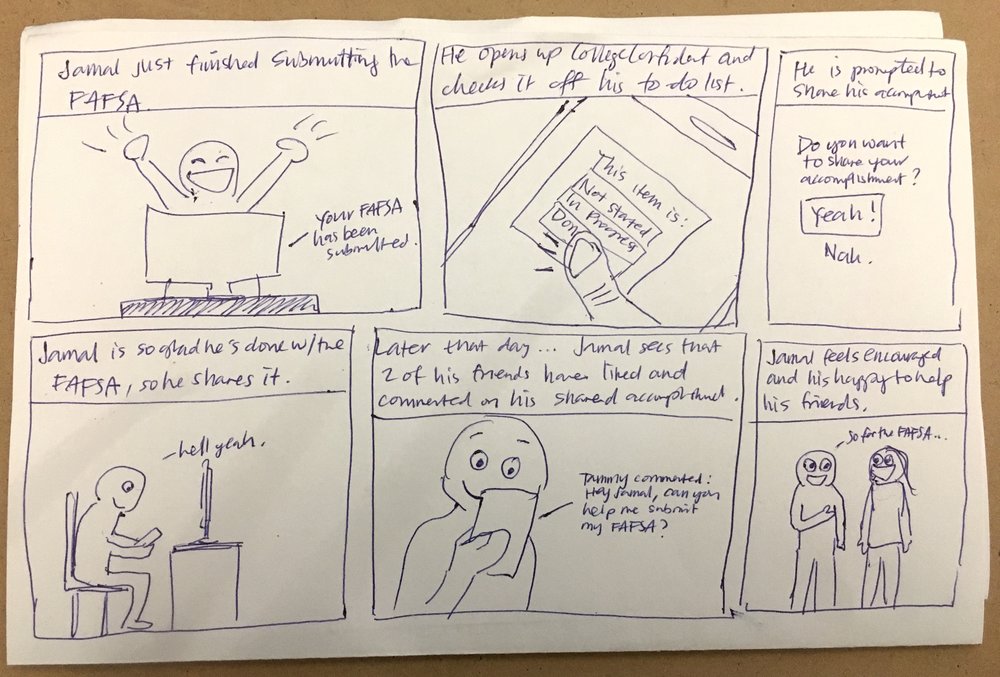 Jamal just finished submitting the
FAFSA
Your FAFSA
has been
submitted.
He opens up CollegeConfident and
checks it off his to do list.
This item is:
Not started
In Progress
Don
He is prompted to
share his
Do you want
to share your
accomplishment?
Yeah!
Nah.
Jamal is so glad he's done w/ the
FAFSA, so he shares it.
hell yeah.
Later that day... Jamal sees that
2 of his friends have liked and
commented on his shared
Tammy commented:
Hey Jamal, can you
help me submit
my FAFSA?
Jamal feels encouraged
and his happy to help
his friends.
So for the FAFSA...